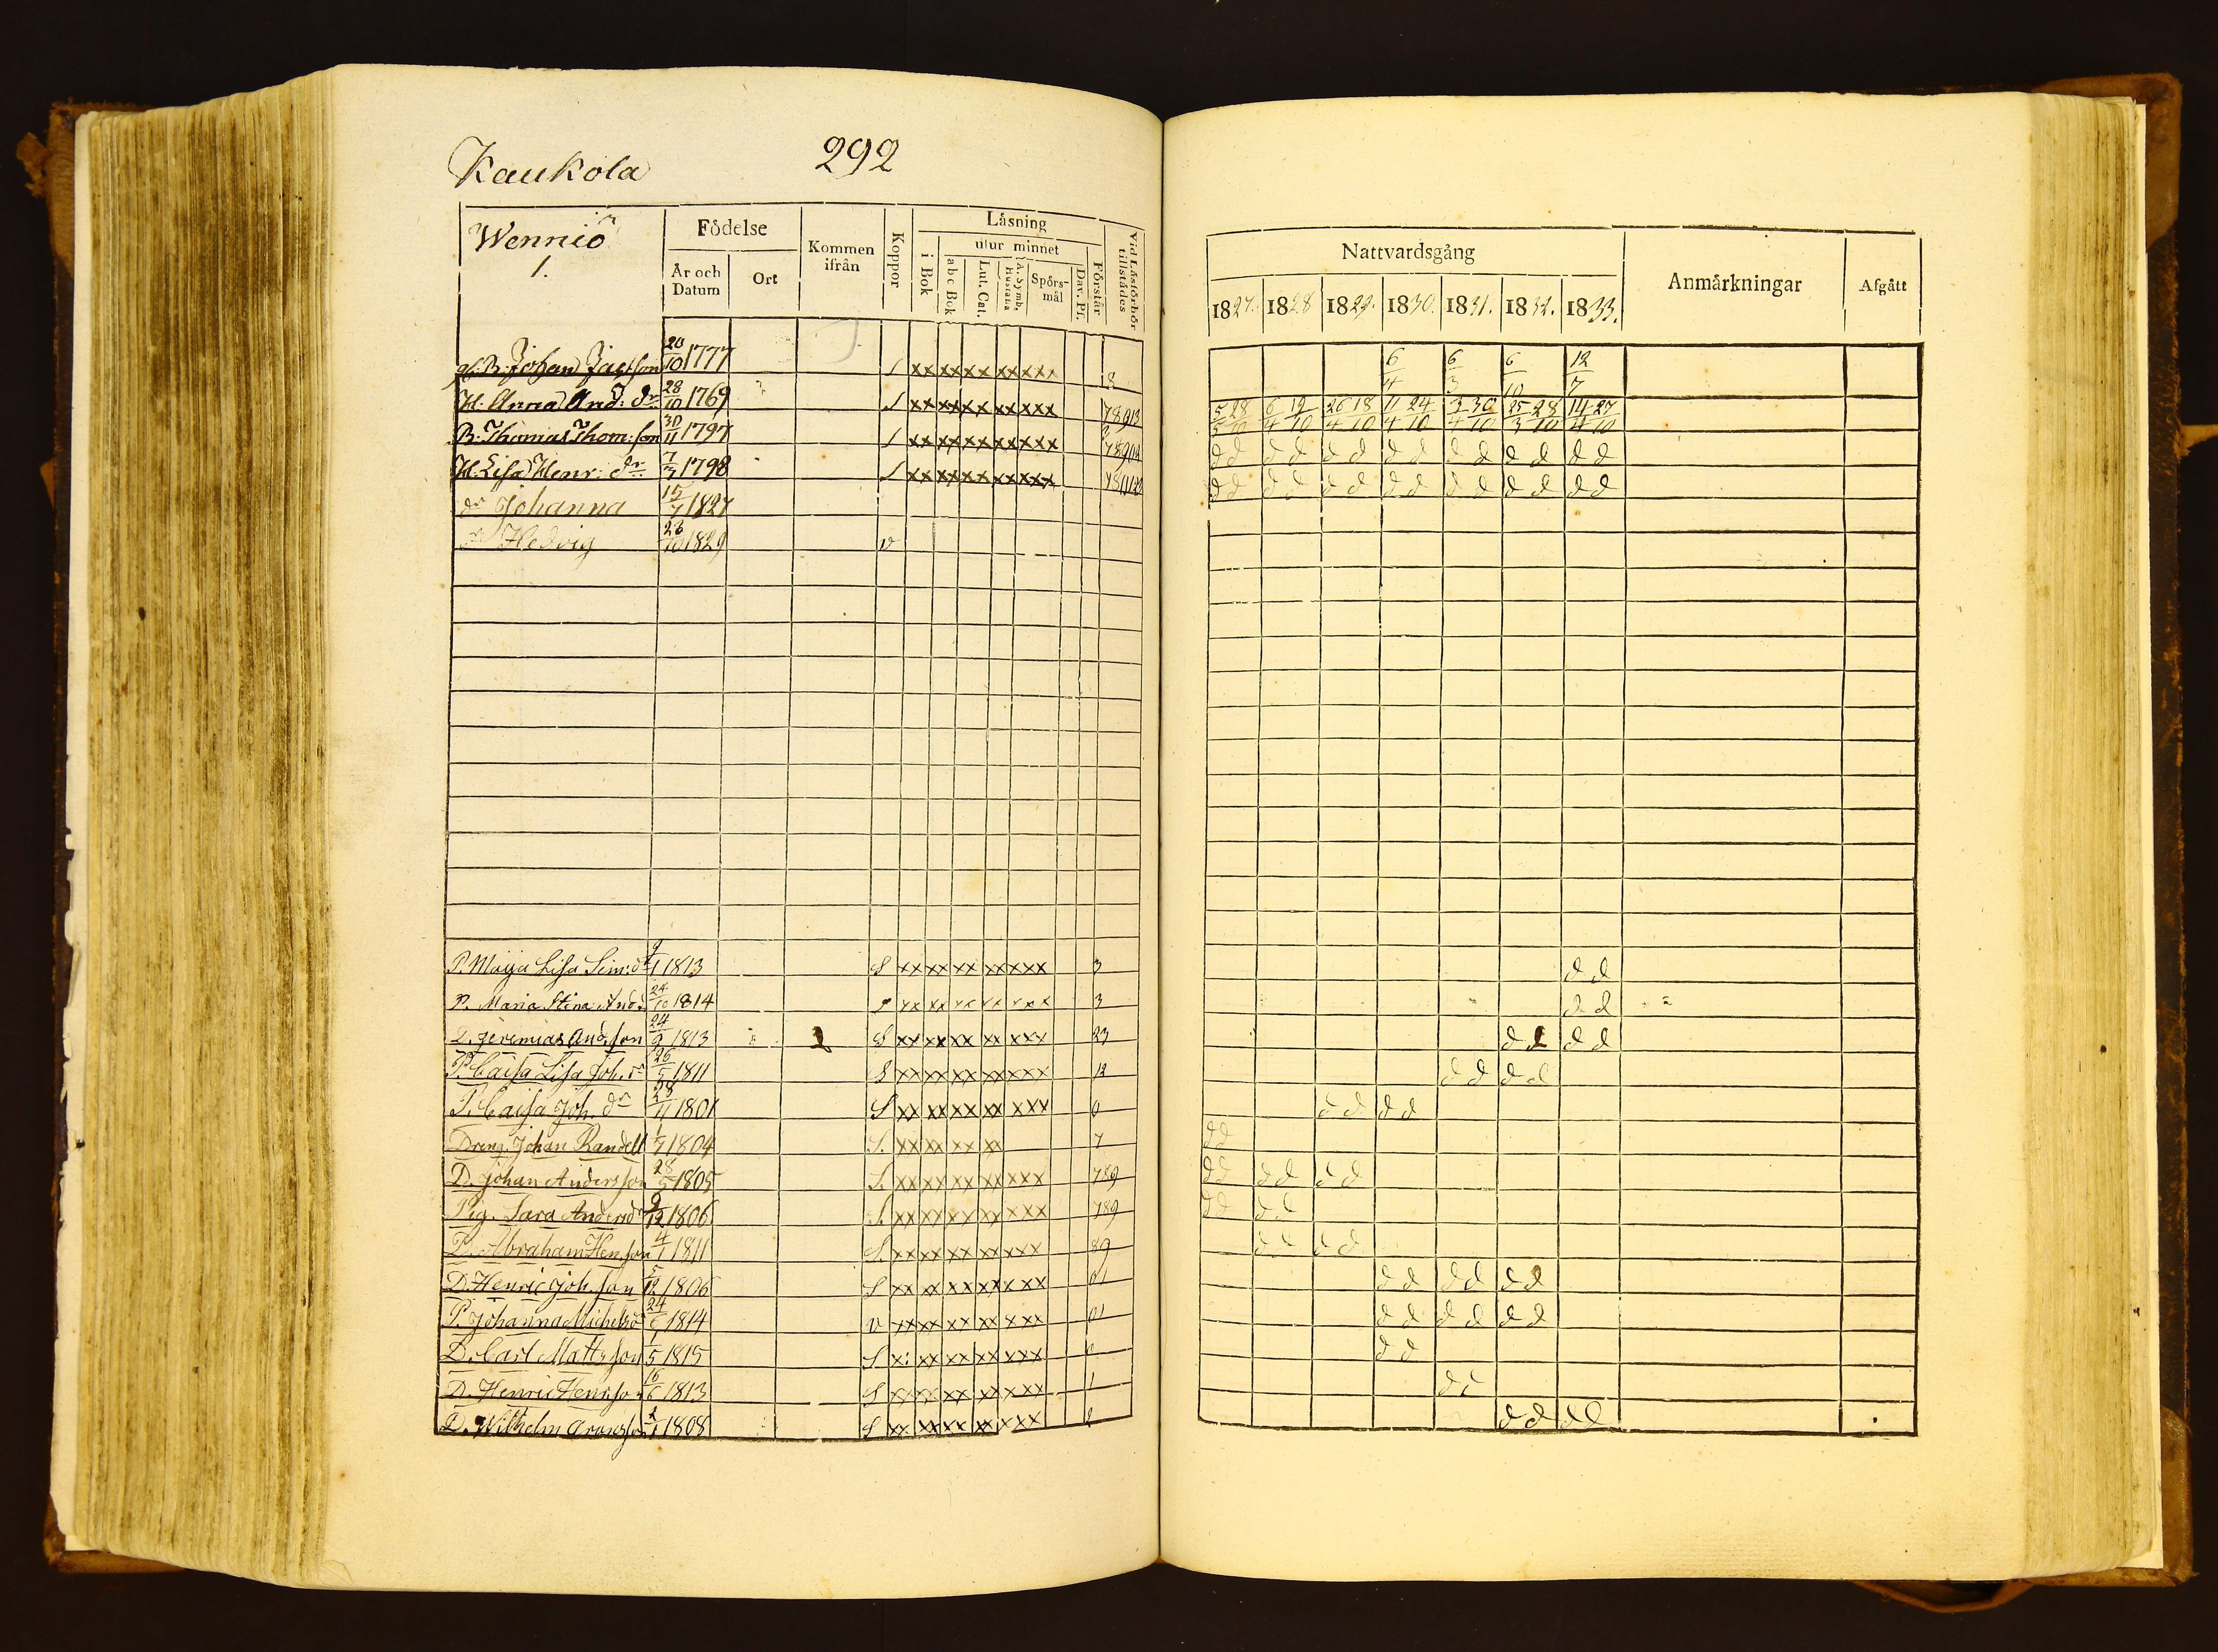 Kaukola 292
Wenniö
1.
Födelse
År och Datum
Ort
Kommen ifrån
Koppor
Läsning
i Bok
utur minnet
abc Bok
Lut. Cat.
A. Symb. Hustafla
Spörsmål
Dav. Ps.
Förstår
Vid Läsförhör tillstädes
Nattvardsgång
1827. 1828 1829. 1830. 1831. 1832. 1833.
Anmärkningar
Afgått
Johan Jacsson 20/10 1777 xx xx xx xx xxx 8 6/4 6/3 6/10 12/7
H. Anna And: dr 28/10 1769 xx xx xx xx xxx 5/3 28/10 6/4 12/10 26/4 18/10 11/4 24/10 3/4 30/10 25/3 28/10 14/4 27/10
B. Thomas Thom: son 30/11 1797 xx xx xx xx xxx d d d d d d d d d d d d d d
H. Lisa Henr: dr 7/3 1798 xx xx xx xx xxx d d d d d d d d d d d d d d
dr Johanna 15/7 1827
dr Hedvig 23/10 1829 v
P. Maija Lisa Sim: dr 9/1 1813 S xx xx xx xx xxx 3 d d
P. Maria Stina And: 24/10 1814 xx xx xx xx xxx 3 d d
D. Jeremias And: son 24/9 1813 S xx xx xx xx xxx 23 d d d d
P. Caisa Lisa Joh. dr 26/5 1811 S xx xx xx xx xxx 12 d d d d
P. Caisa Joh. dr 28/11 1801 S xx xx xx xx xxx 0 d d d d
Dreng. Johan Randell 1/7 1804 S. xx xx xx xx 7 d d
D. Johan Andersson 28/5 1805 S. xx xx xx xx xxx 789 d d d d d d
Pig. Sara Andersdr 9/12 1806 S. xx xx xx xx xxx 789 d d d d
D. Abraham Hen. son 4/1 1811 S. xx xx xx xx xxx 89 d d d d
D. Henric Joh. son 5/12 1806 S xx xx xx xx xxx 01 d d d d d d
P. Johanna Michelsdr 24/6 1814 v xx xx xx xx xxx 01 d d d d d d
D. Carl Mattsson 1/5 1815 S x: xx xx xx xxx 0 d d
D. Henric Henr: son 16/6 1813 S xx xx xx xx xxx 1 d d
D. Wilhelm Aronsson 2/1 1808 S xx xx xx xx xxx 2 d d d d